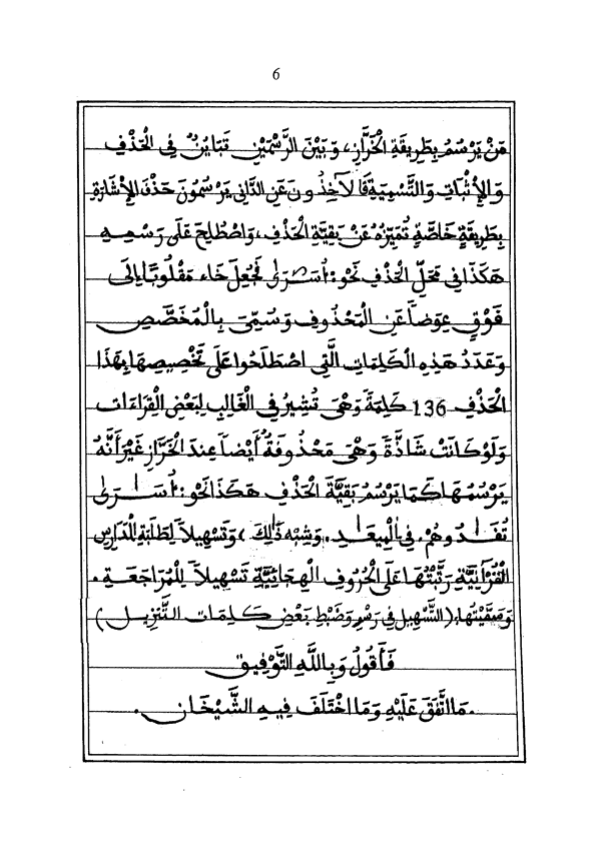 6
مَنْ يَرْسُمُ بِطَرِيقَةِ الْخَرَّازِ، وَبَيْنَ الرَّسْمَيْنِ تَبَايُنٌ فِي الْحَذْفِ
وَالْإِثْبَاتِ وَالتَّسْمِيَةِ فَالآخِذُونَ عَنِ الدَّانِي يَرْسُمُونَ حَذْفَ الْإِشَارَةِ
بِطَرِيقَةٍ خَاصَّةٍ تُمَيِّزُهُ عَنْ بَقِيَّةِ الْحَذْفِ، وَاصْطُلِحَ عَلَى رَسْمِهِ
هَكَذَا فِي مَحَلِّ الْحَذْفِ نَحْوُ: أُسَـٰرَىٰ فَجُعِلَ خَاء مَقْلُوبًا إِلَى
فَوْقٍ عِوَضاً عَنِ الْمَحْذُوفِ وَسُمِّيَ بِالْمُخَصَّصِ
وَعَدَدُ هَذِهِ الْكَلِمَاتِ الَّتِي اصْطَلَحُوا عَلَى تَخْصِيصِهَا بِهَذَا
الْحَذْفِ 136 كَلِمَةً وَهْيَ تُشِيرُ فِي الْغَالِبِ لِبَعْضِ الْقِرَاءَاتِ
وَلَوْ كَانَتْ شَاذَّةً وَهْيَ مَحْذُوفَةٌ أَيْضاً عِندَ الْخَرَّازِ غَيْرَ أَنَّهُ
يَرْسُمُهَا كَمَا يَرْسُمُ بَقِيَّةَ الْحَذْفِ هَكَذَا نَحْوُ: أُسَـٰرَىٰ
تُفَـٰدُوهُمْ، فِي الْمِيعَـٰدِ. وَشِبْهَ ذَٰلِكَ، وَتَسْهِيلاً لِطَلَبَةِ الْمَدَارِسِ
الْقُرْآنِيَّةِ رَتَّبْتُهَا عَلَى الْحُرُوفِ الْهِجَائِيَّةِ تَسْهِيلاً لِلْمُرَاجَعَةِ.
وَسَمَّيْتُهَا: (التَّسْهِيل فِي رَسْمِ وَضَبْطِ بَعْضِ كَلِمَاتِ التَّنْزِيلِ)
فَأَقُولُ وَبِاللَّهِ التَّوْفِيقِ
.مَا اتَّفَقَ عَلَيْهِ وَمَا اخْتَلَفَ فِيهِ الشَّيْخَانِ.